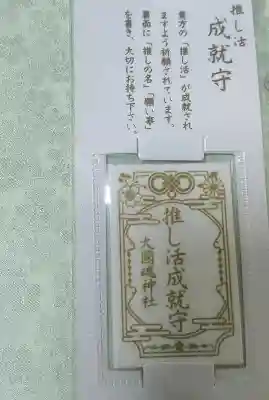 推し活
成就守
貴方の「推し活」が成就され
ますよう祈願されています。
裏面に「推しの名」「願い事」
を書き、大切にお持ち下さい。
推し活成就守
大國魂神社